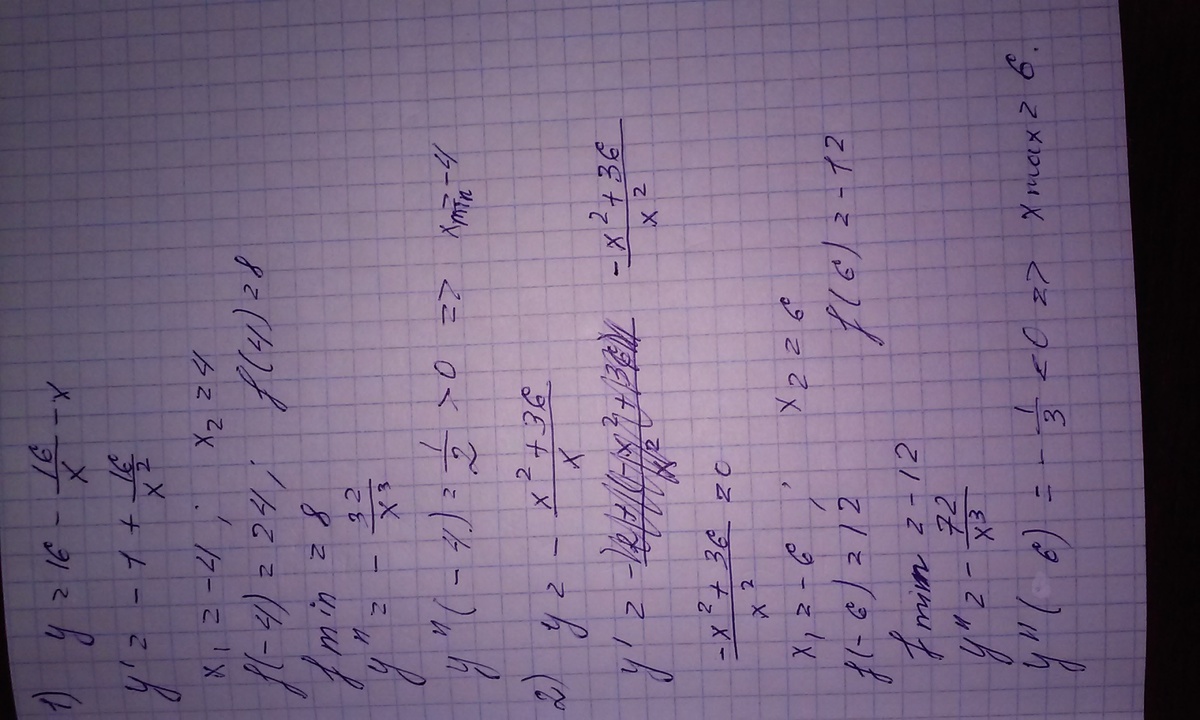 1) y = 16 - 16/x - x
y' = -1 + 16/x²
x₁ = -4 ; x₂ = 4
f(-4) = 24 ; f(4) = 8
fmin = 8
y'' = - 32/x³
y''(-4) = 1/2 > 0 => xmin = -4
2) y = - (x² + 36)/x
y' = (-x² + 36)/x²
(-x² + 36)/x² = 0
x₁ = -6 ; x₂ = 6
f(-6) = 12 f(6) = -12
fmin = -12
y'' = - 72/x³
y''(6) = - 1/3 < 0 => xmax = 6.